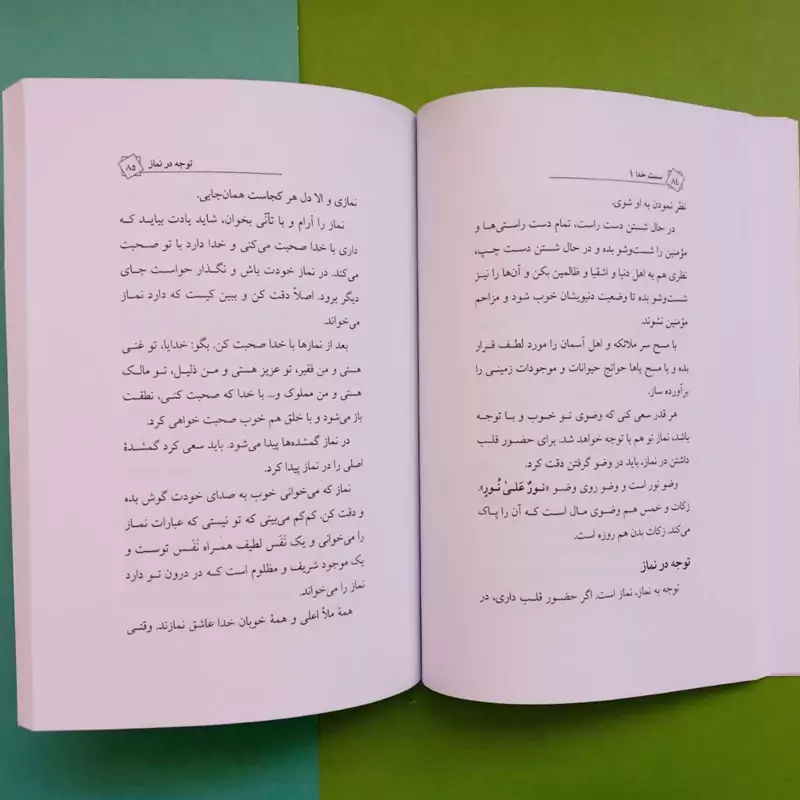 سمت خدا ۱
۸۴
نظر نمودن به او شوی.
در حال شستن دست راست، تمام دست راستی‌ها و
مؤمنین را شست‌وشو بده و در حال شستن دست چپ،
نظری هم به اهل دنیا و اشقیا و ظالمین بکن و آن‌ها را نیز
شست‌وشو بده تا وضعیت دنیویشان خوب شود و مزاحم
مؤمنین نشوند.
با مسح سر ملائکه و اهل آسمان را مورد لطف قرار
بده و با مسح پاها حوائج حیوانات و موجودات زمینی را
برآورده ساز.
هر قدر سعی کنی که وضوی تو خوب و با توجه
باشد، نماز تو هم با توجه خواهد شد. برای حضور قلب
داشتن در نماز، باید در وضو گرفتن دقت کرد.
وضو نور است و وضو روی وضو «نورٌ عَلیٰ نُورٍ».
زکات و خمس هم وضوی مال است که آن را پاک
می‌کند. زکات بدن هم روزه است.
توجه در نماز
توجه به نماز، نماز است. اگر حضور قلب داری، در
توجه در نماز
۸۵
نمازی و الا دل هر کجاست همان‌جایی.
نماز را آرام و با تأنّی بخوان، شاید یادت بیاید که
داری با خدا صحبت می‌کنی و خدا دارد با تو صحبت
می‌کند. در نماز خودت باش و نگذار حواست جای
دیگر برود. اصلاً دقت کن و ببین کیست که دارد نماز
می‌خواند.
بعد از نمازها با خدا صحبت کن. بگو: خدایا، تو غنی
هستی و من فقیر، تو عزیز هستی و من ذلیل، تو مالک
هستی و من مملوک و... با خدا که صحبت کنی، نطقت
باز می‌شود و با خلق هم خوب صحبت خواهی کرد.
در نماز گمشده‌ها پیدا می‌شود. باید سعی کرد گمشدهٔ
اصلی را در نماز پیدا کرد.
نماز که می‌خوانی خوب به صدای خودت گوش بده
و دقت کن. کم‌کم می‌بینی که تو نیستی که عبارات نماز
را می‌خوانی و یک نَفَس لطیف همراه نَفَس توست و
یک موجود شریف و مظلوم است که در درون تو دارد
نماز را می‌خواند.
همهٔ ملأ اعلی و همهٔ خوبان خدا عاشق نمازند. وقتی